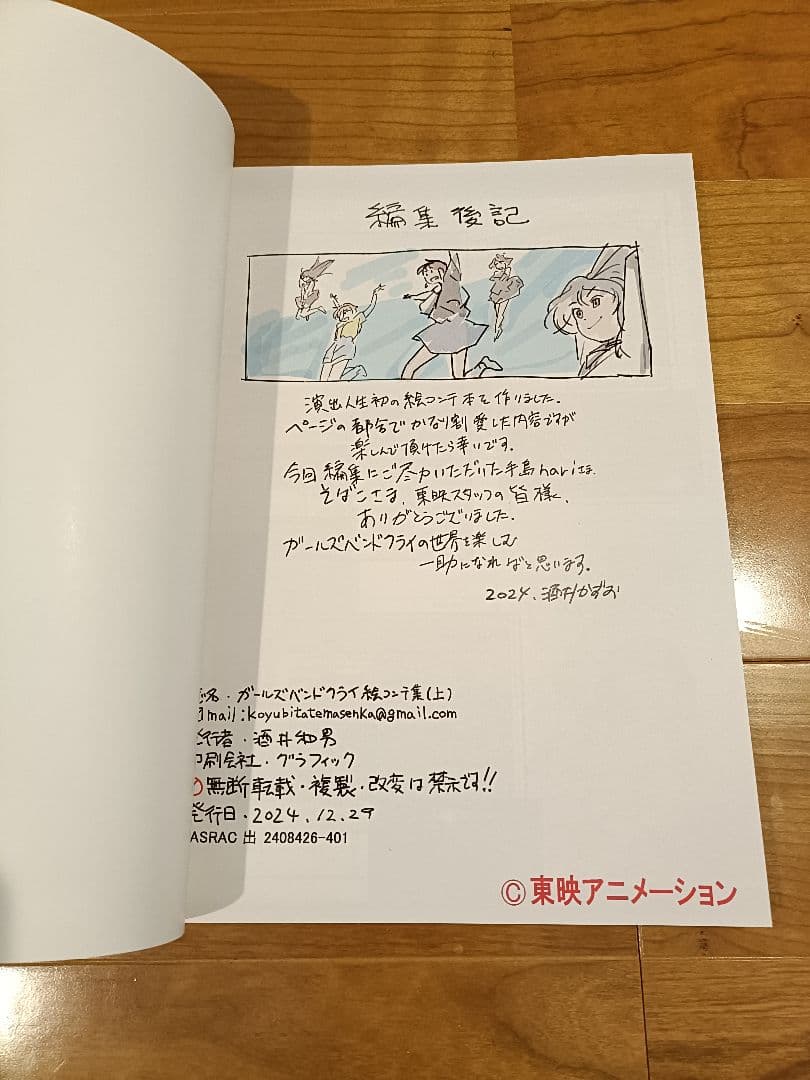 編集後記
演出人生初の絵コンテ本を作りました。
ページの都合でかなり割愛した内容ですが
楽しんで頂けたら幸いです。
今回編集にご尽力いただいた手島nariさま、
そばこさま、東映スタッフの皆様、
ありがとうございました。
ガールズバンドクライの世界を楽しむ
一助になればと思います。
2024.酒井かずお
名・ガールズバンドクライ絵コンテ集(上)
mail:koyubitatemasenka@gmail.com
発行者・酒井和男
印刷会社・グラフィック
無断転載・複製・改変は禁示です!!
発行日・2024.12.29
ASRAC 出 2408426-401
©東映アニメーション